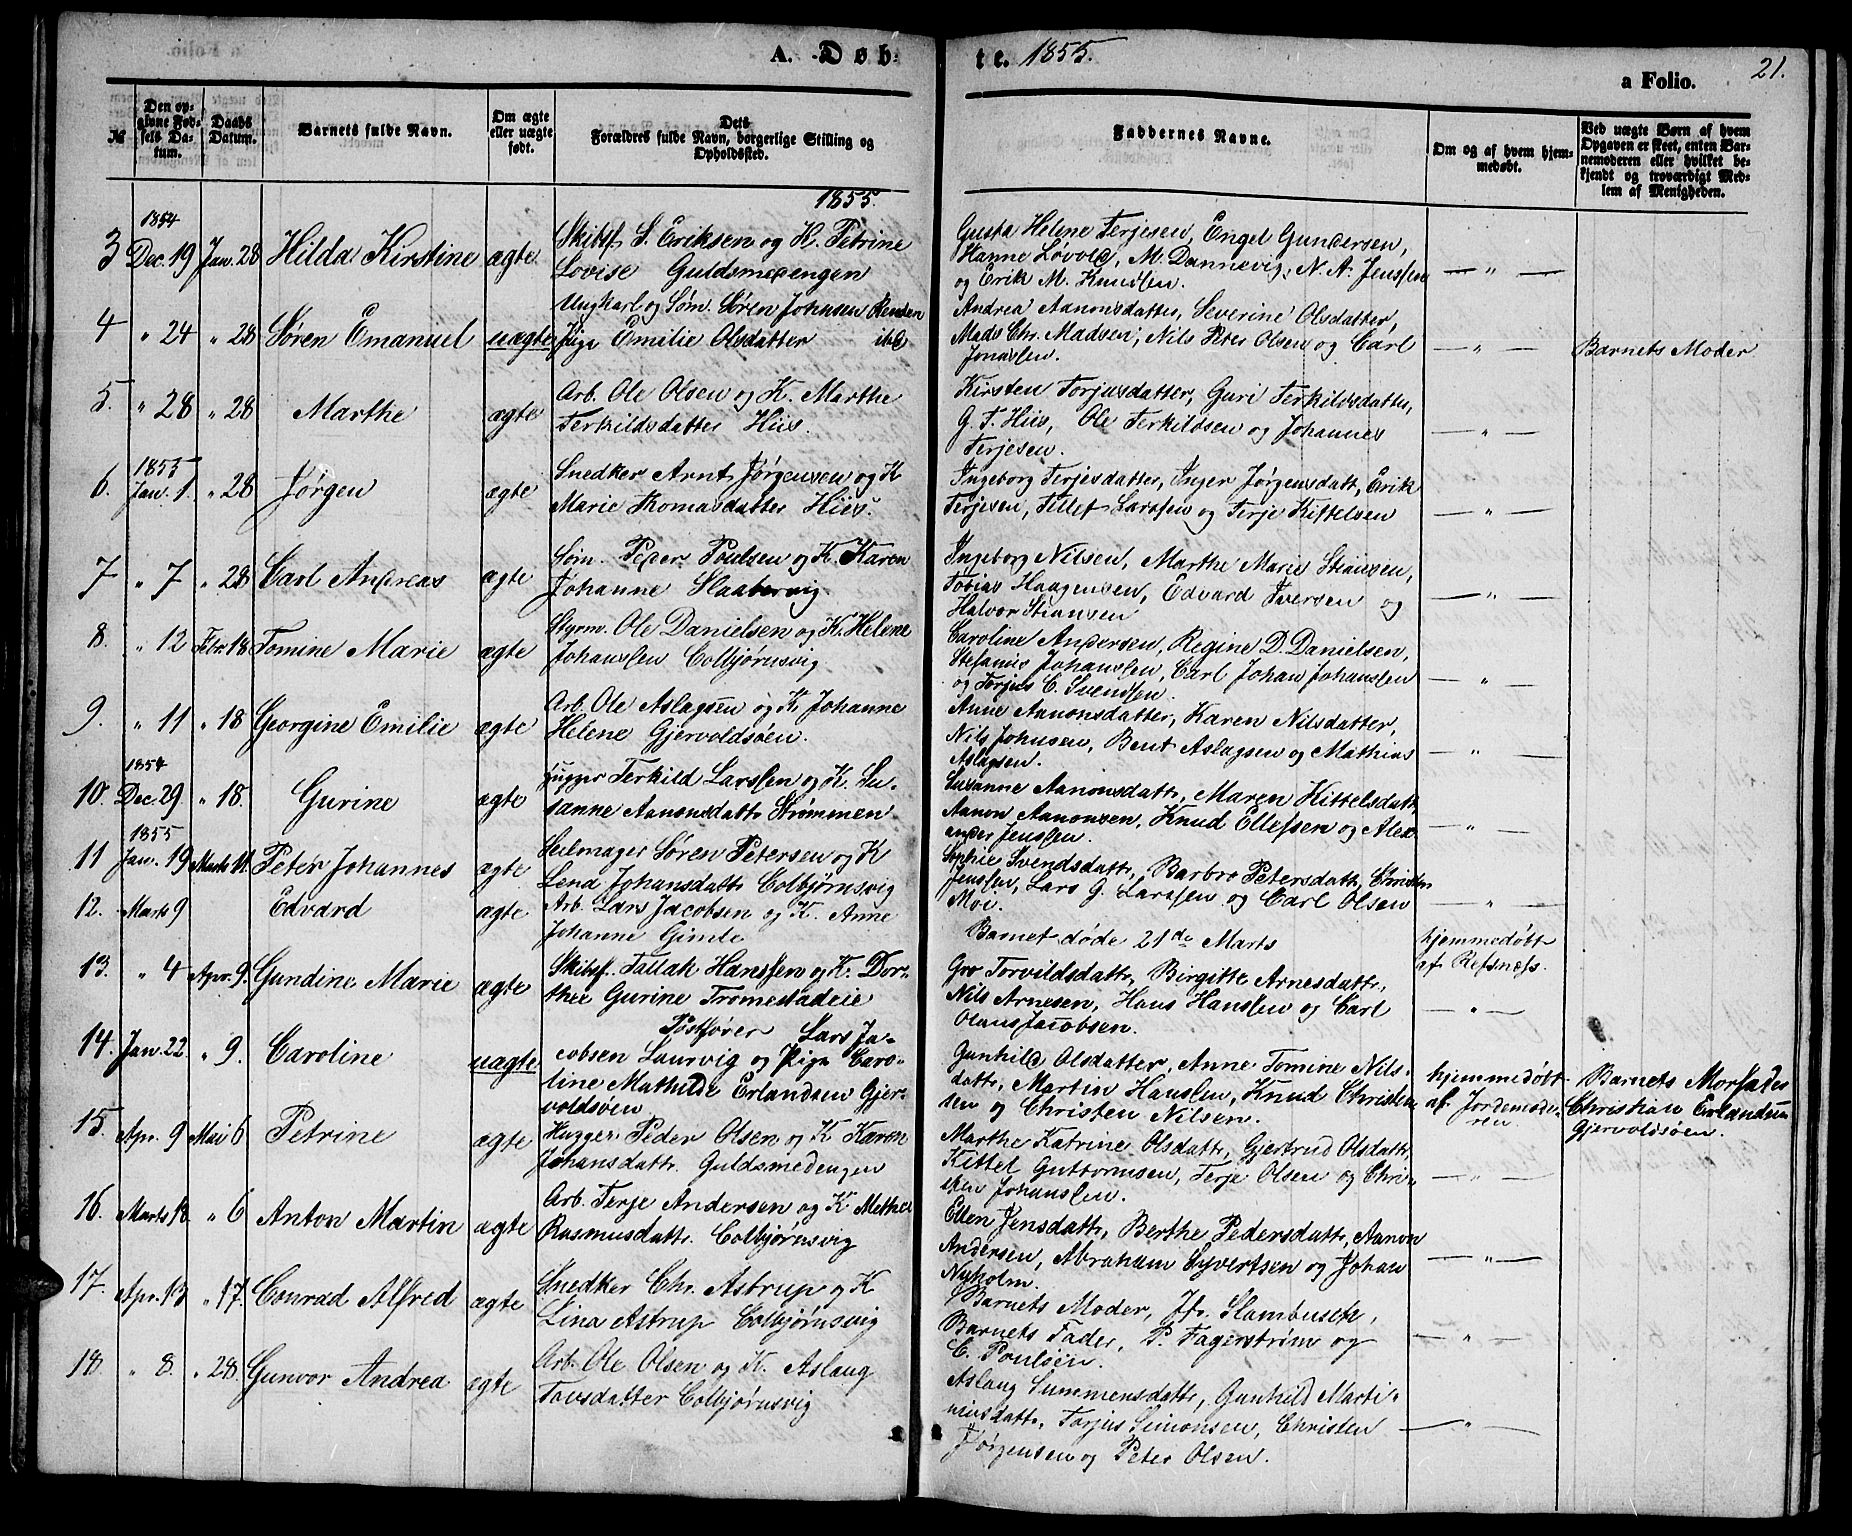 A. Døb-
te. 1855.
a Folio.
21.
№
Den opgivne Fødsels Datum.
Daabs Datum.
Barnets fulde Navn.
Om ægte eller uægte født.
Dets Forældres fulde Navn, borgerlige Stilling og Opholdssted.
Faddernes Navne.
Om og af hvem hjemmedøbt.
Ved uægte Børn af hvem Opgaven er skeet, enten Barnemoderen eller hvilket bekjendt og troværdigt Medlem af Menigheden.
1855.
1854
3 Dec. 19 Jan. 28 Hilda Kirstine ægte
Skibsf. S. Eriksen og K. Petrine
Lovise Guldsmedengen
Gusta Helene Terjesen, Engel Gundersen,
Hanne Løvold, M. Dannevig, N. A. Jenssen
og Erik M. Knudsen.
— " —
4 " 24 " 28 Søren Emanuel uægte
Ungkarl og Søm. Søren Johnsen Renden
Pige Emilie Olsdatter ibd
Andrea Aanonsdatter, Severine Olsdatter,
Mads Chr. Madsen, Nils Peter Olsen og Carl
Jonassen.
— " —
Barnets Moder
5. " 28 " 28 Marthe ægte
Arb. Ole Olsen og K. Marthe
Terkildsdatter Hiis.
Kirsten Torjusdatter, Guri Terkildsdatter,
G. T. Hiis, Ole Terkildsen og Johannes
Terjesen.
— " —
1855
6. Jan. 1. " 28 Jørgen ægte
Snedker Arnt Jørgensen og K
Marie Thomasdatter Hiis.
Ingeborg Terjesdatter, Inger Jørgensdatt, Erik
Terjesen, Tellef Larssen og Terje Kittelsen
— " —
7 " 7 " 28 Carl Andreas ægte
Søm. Peder Poulsen og K. Karen
Johanne Slaabervig
Ingeborg Nilsen, Marthe Marie Stiansen,
Tobias Haagensen, Edvard Iversen og
Halvor Stiansen
— " —
8. " 12 Febr 18 Tomine Marie ægte
Styrm. Ole Danielsen og K. Helene
Johanssen Colbjørnsvig
Caroline Andersen, Regine D. Danielsen,
Stefanius Johanssen, Carl Johan Johanssen
og Torjus C. Svendsen.
— " —
9. " 11 " 18 Georgine Emilie ægte
Arb. Ole Aslagsen og K Johanne
Helene Gjervoldsøen.
Anne Aanonsdatter, Karen Nilsdatter,
Nils Johnsen, Bent Aslagsen og Mathias
Aslagsen.
— " —
1854
10. Dec. 29 " 18. Gurine ægte
Hugger Terkild Larssen og K. Su-
sanne Aanonsdattr Strømmen
Susanne Aanonsdattr, Maren Kittelsdatt,
Aanon Aanonsen, Knud Ellefsen og Alex-
ander Jenssen.
— " —
1855
11 Jan. 19 Marts 11. Peter Johannes ægte
Seilmager Søren Petersen og K
Lena Johansdattr Colbjørnsvig
Sophie Svendsdattr, Barbro Petersdatt, Christen
Jenssen, Lars G. Larssen og Carl Olsen
Moi.
— " —
12. Marts 9 Edvard ægte
Arb. Lars Jacobsen og K. Anne
Johanne Gimle
Barnet døde 21de Marts
hjemmedøbt
af Refsnæs.
13. " 4 Apr. 9. Gundine Marie ægte
Skibsf. Tallak Hanssen og K. Dor-
thee Gurine Tromestadeie
Gro Torvildsdattr, Birgitte Arnesdattr,
Nils Arnesen, Hans Hanssen og Carl
Olaus Jacobsen.
— " —
14. Jan. 22. " 9. Caroline uægte
Postfører Lars Ja-
cobsen Laurvig og Pige Caro-
line Mathilde Erlandsen Gjer-
voldsøen
Gunhild Olsdatter, Anne Tomine Nils-
dattr, Martin Hanssen, Knud Christen-
sen og Christen Nilsen.
hjemmedøbt
af Jordemode-
ren.
Barnets Morfader
Christian Erlandsen
Gjervoldsøen.
15. Apr. 9 Mai 6 Petrine ægte
Hugger Peder Olsen og K Karen
Johansdattr. Guldsmedengen
Marthe Katrine Olsdattr, Gjertrud Olsdattr,
Kittel Guttormsen, Terje Olsen og Chri-
sten Johanssen.
— " —
16. Marts 13 " 6 Anton Martin ægte
Arb. Terje Andersen og K Methea
Rasmusdattr. Colbjørnsvig
Ellen Jensdattr, Berthe Pedersdattr, Aanon
Andersen, Abraham Syvertsen og Johan
Nyholm.
— " —
17. Apr. 13 " 17. Conrad Alfred ægte
Snedker Chr. Astrup og K
Lina Astrup Colbjørnsvig
Barnets Moder, Jfr. Slambusch,
Barnets Fader, P. Fagerstrøm og
C. Poulsen.
— " —
18. " 8. " 28. Gunvor Andrea ægte
Arb. Ole Olsen og K. Aslaug
Tovsdatter Colbjørnsvig
Aslaug Summensdattr, Gunhild Marti-
niusdattr, Torjus Simonsen, Christen
Jørgensen og Peter Olsen.
— " —